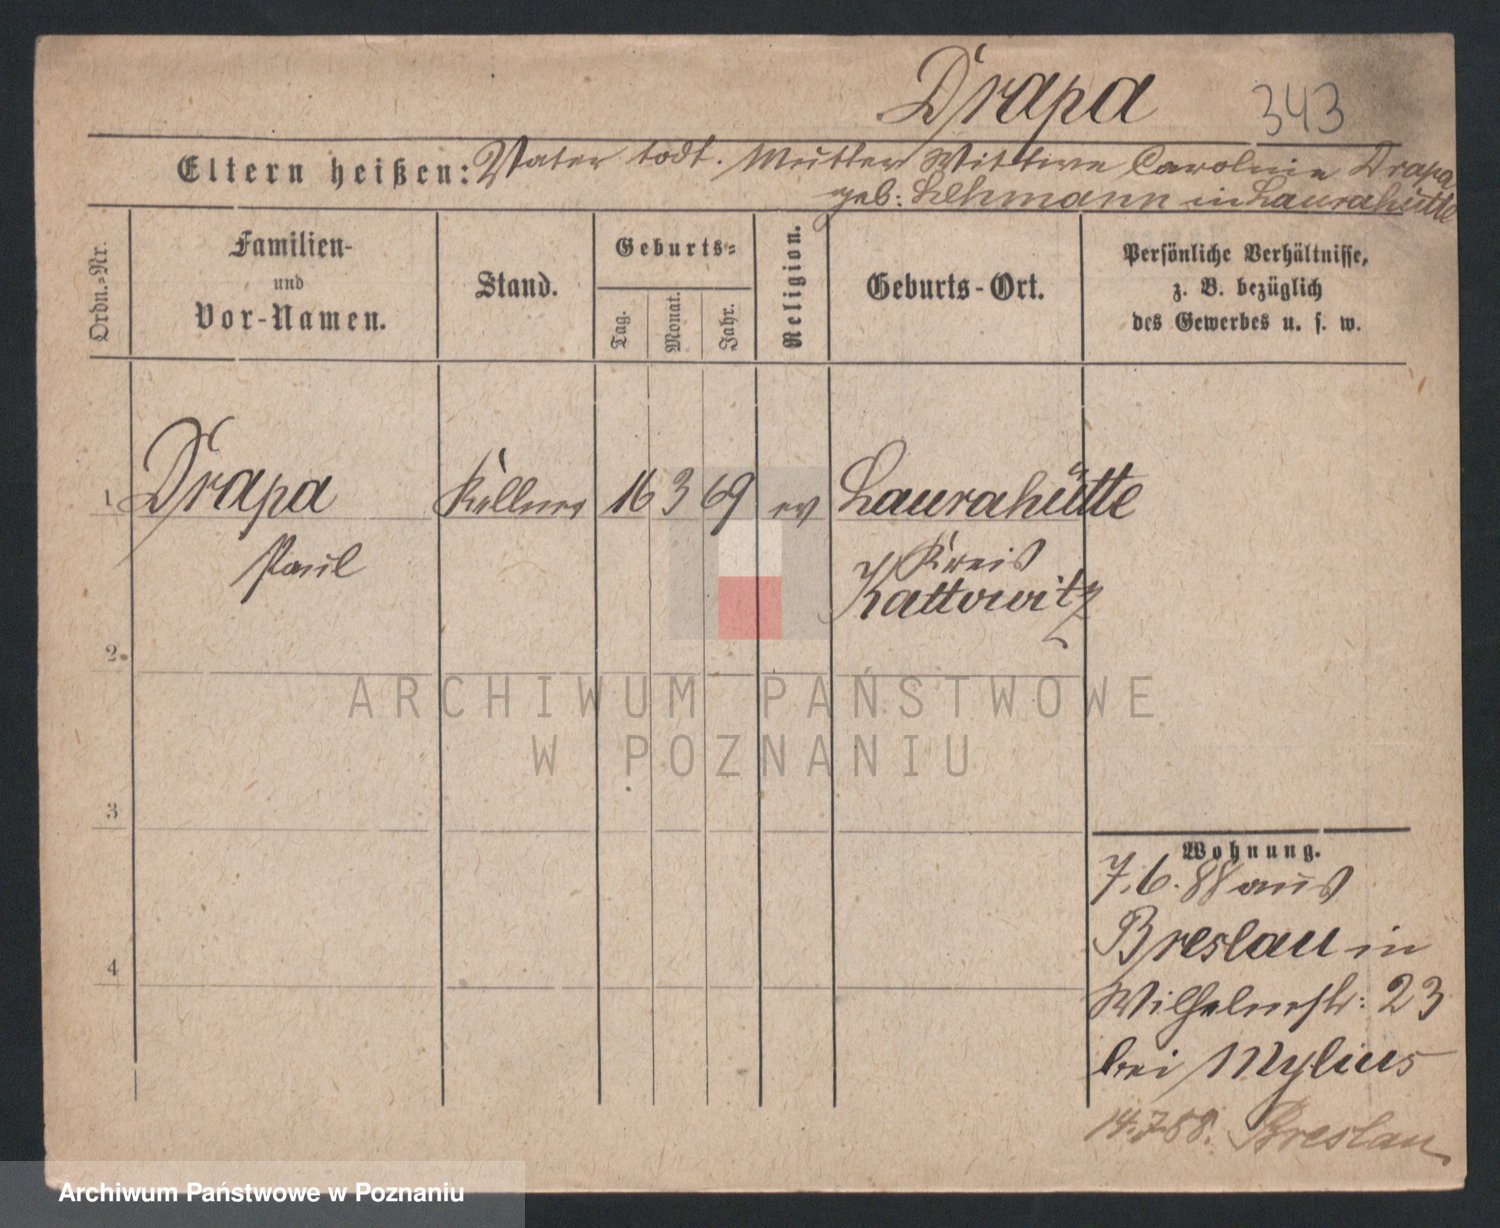 Drapa 343
Eltern heißen: Vater todt. Mutter Wittwe Caroline Drapa
geb: Lehmann in Laurahütte
Ordn.-Nr.
Familien-
und
Vor-Namen.
Stand.
Geburts-
Tag.
Monat.
Jahr.
Religion.
Geburts-Ort.
Persönliche Verhältnisse,
z. B. bezüglich
des Gewerbes u. s. w.
1 Drapa Kellner 16 3 69 ev Laurahütte
Paul Kreis
Kattowitz
2.
ARCHIWUM PAŃSTWOWE
W POZNANIU
3
4
Wohnung.
7.6.88 aus
Breslau in
Wilhelmstr: 23
bei Mylius
14.7.88. Breslau
Archiwum Państwowe w Poznaniu